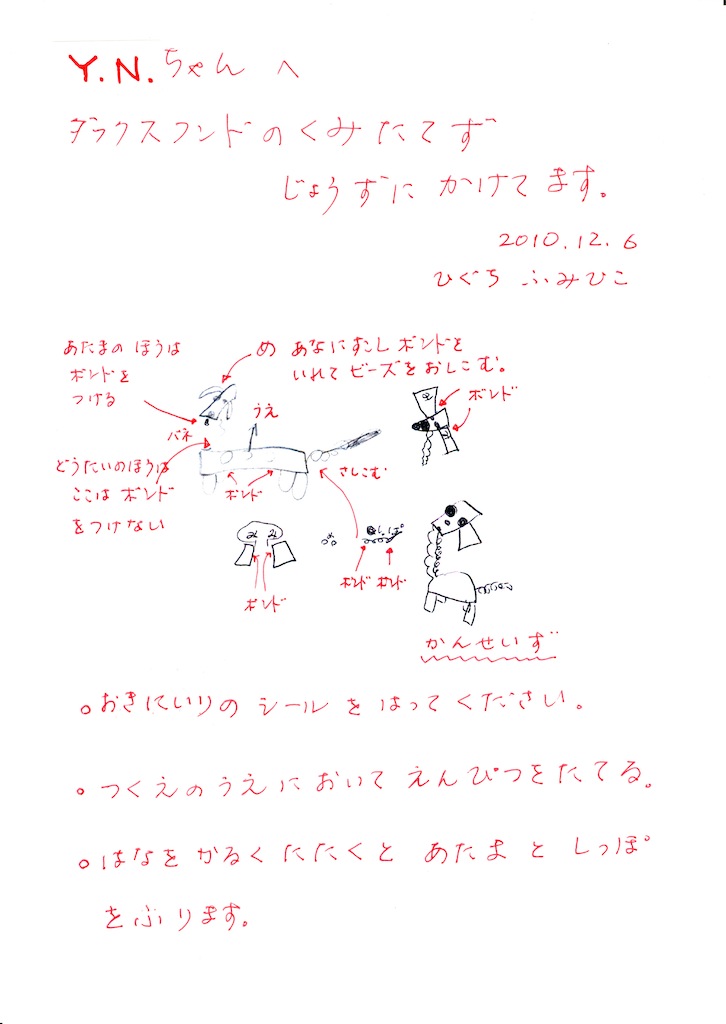 Y.N.ちゃんへ
ダックスフンドのくみたてず
じょうずに かけてます。
2010.12.6
ひぐち ふみひこ
あたまの ほうは
ボンドを
つける
め あなにすこし ボンドを
いれて ビーズをおしこむ。
ボンド
バネ
うえ
どうたいのほうは
ここは ボンド
をつけない
ボンド
さしこむ
しっぽ
ボンド
ボンド ボンド
かんせいず
○おきにいりの シールを はってください。
○つくえのうえに おいて えんぴつをたてる。
○はなを かるく たたくと あたまと しっぽ
をふります。